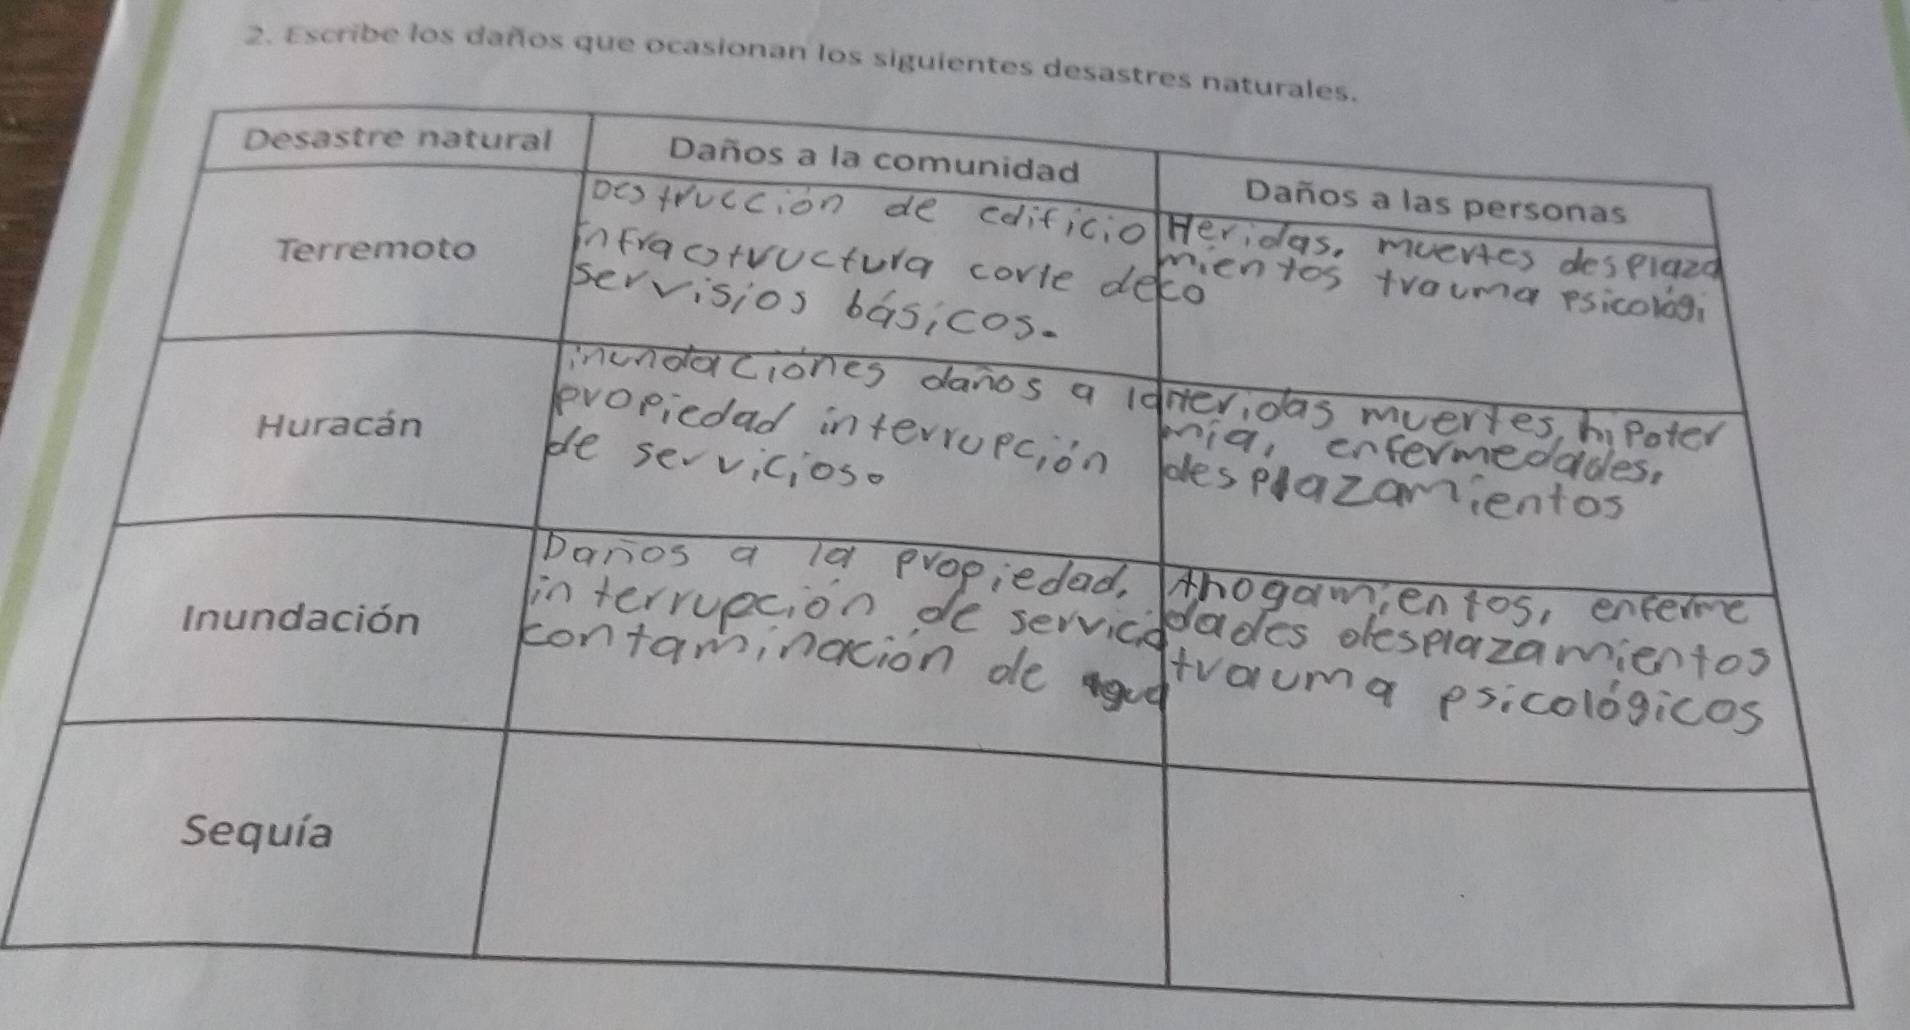 2. Escribe los daños que ocasionan los siguientes desastres naturales.
Desastre natural
Daños a la comunidad
Daños a las personas
Terremoto
Destrucción de edificio
infraestructura corte de
servisios básicos.
Heridas, muertes desplaza
mientos trauma psicológi
co
Huracán
inundaciones daños a la
propiedad interrupción
de servicios.
Heridas muertes, hipoter
mia, enfermedades,
desplazamientos
Inundación
Daños a la propiedad,
interrupción de servicio
contaminación de agua
Ahogamientos, enferme
dades desplazamientos
trauma psicológicos
Sequía